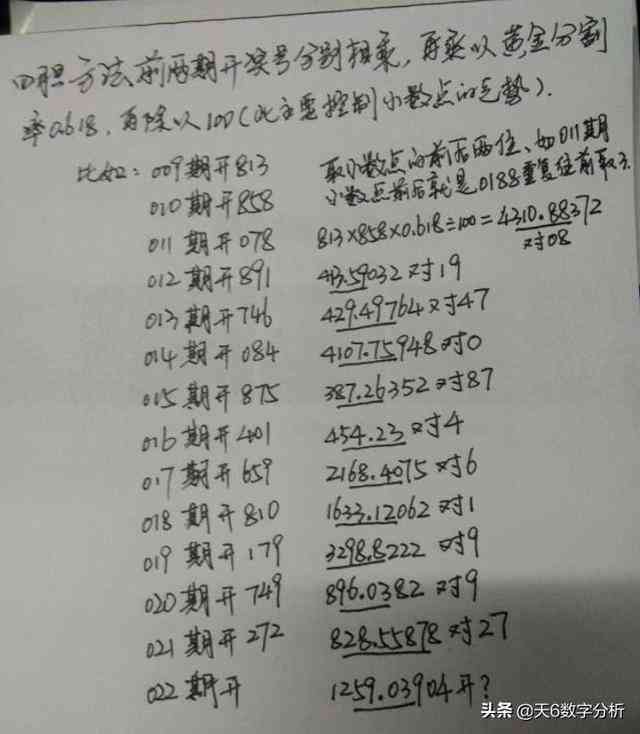 四胆方法前两期开奖号分别相乘,再乘以黄金分割
率0.618,再除以100(此主要控制小数点的走势).
比如: 009期开813 取小数点的前后两位、如011期
010期开858 小数点前后就是0188重复往前取3.
011期开078 813×858×0.618÷100=4310.88372 对08
012期开891 413.59032对19
013期开746 429.49764对47
014期开084 4107.75948对0
015期开875 387.26352对87
016期开401 454.23对4
017期开659 2168.4075对6
018期开810 1633.12062对1
019期开179 3298.8222对9
020期开749 896.0382对9
021期开272 828.55878对27
022期开 1259.03904开?
头条@天6数字分析